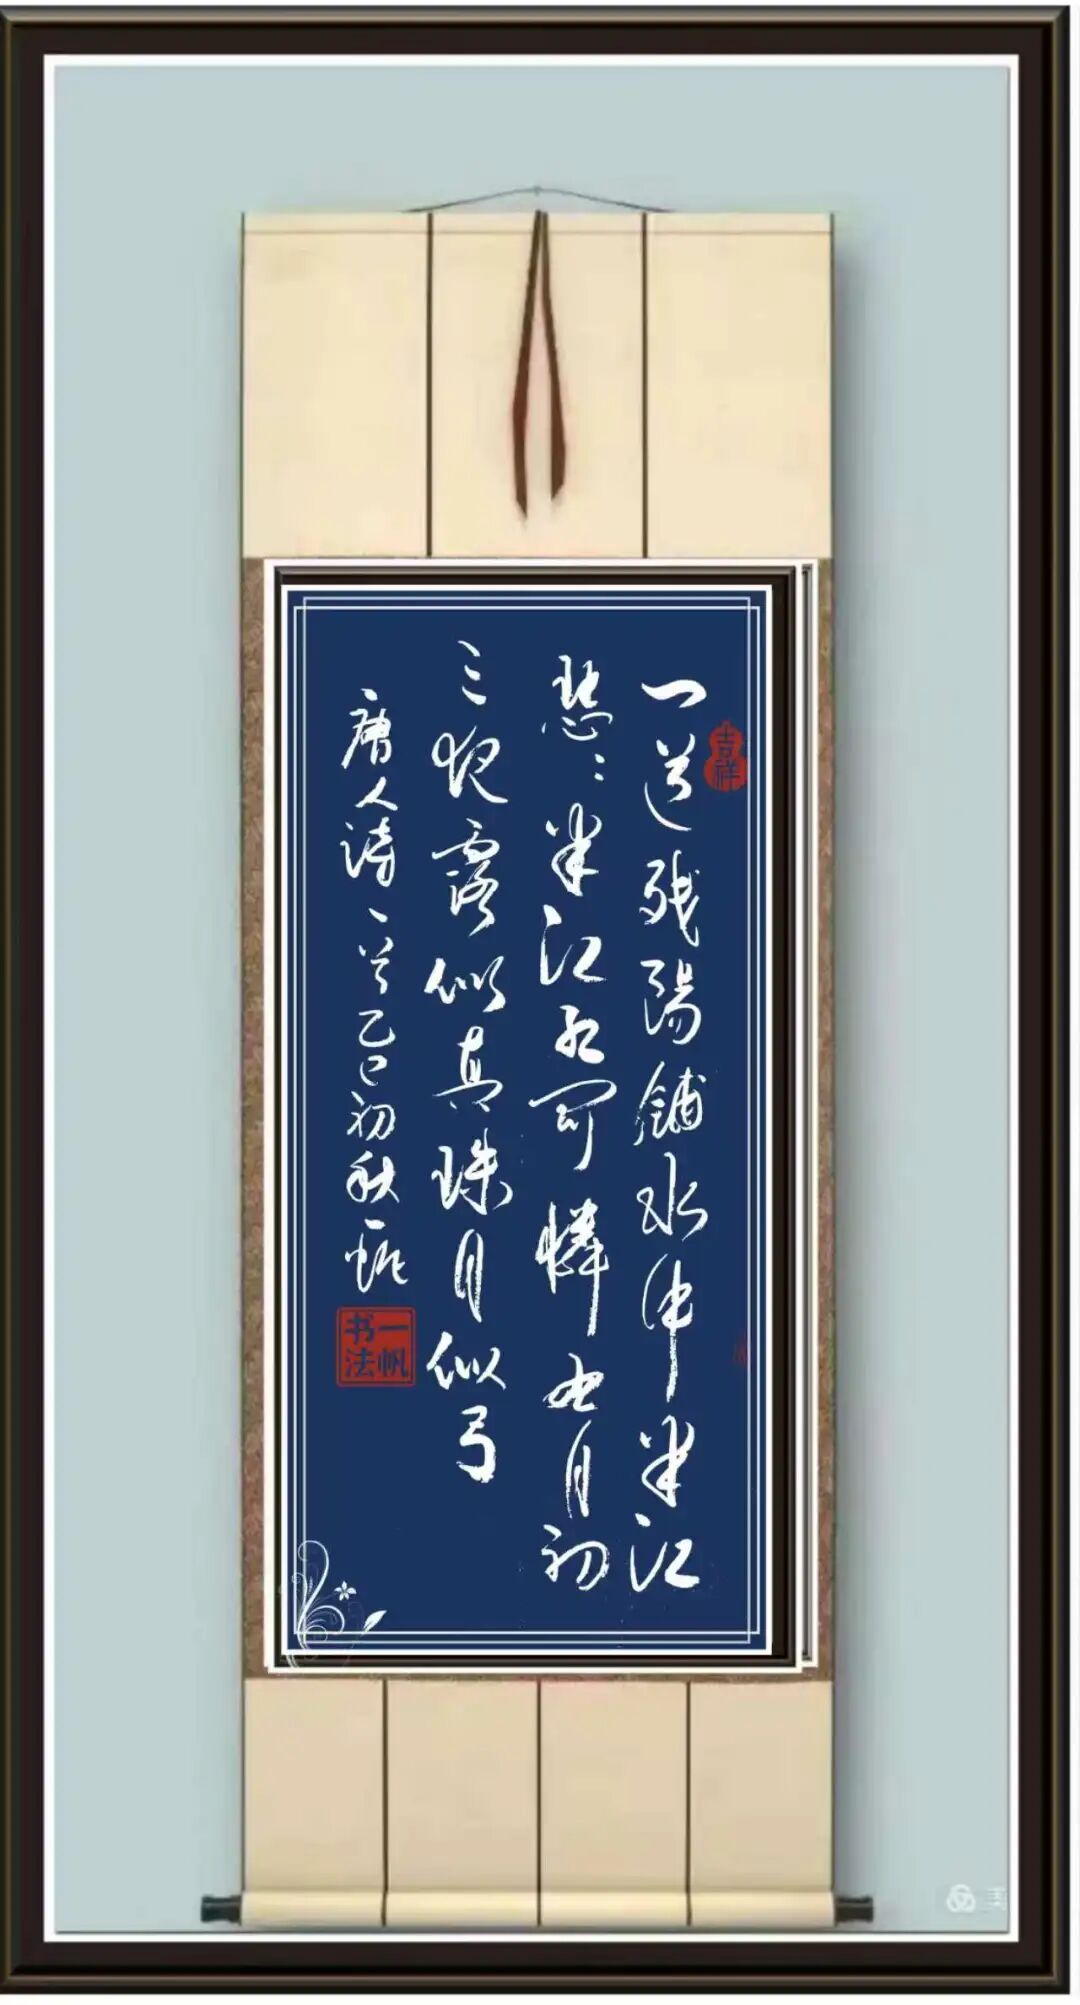 吉祥
一道残陽鋪水中半江
瑟々半江红可憐九月初
三夜露似真珠月似弓
唐人诗一首乙巳初秋一帆
一帆书法